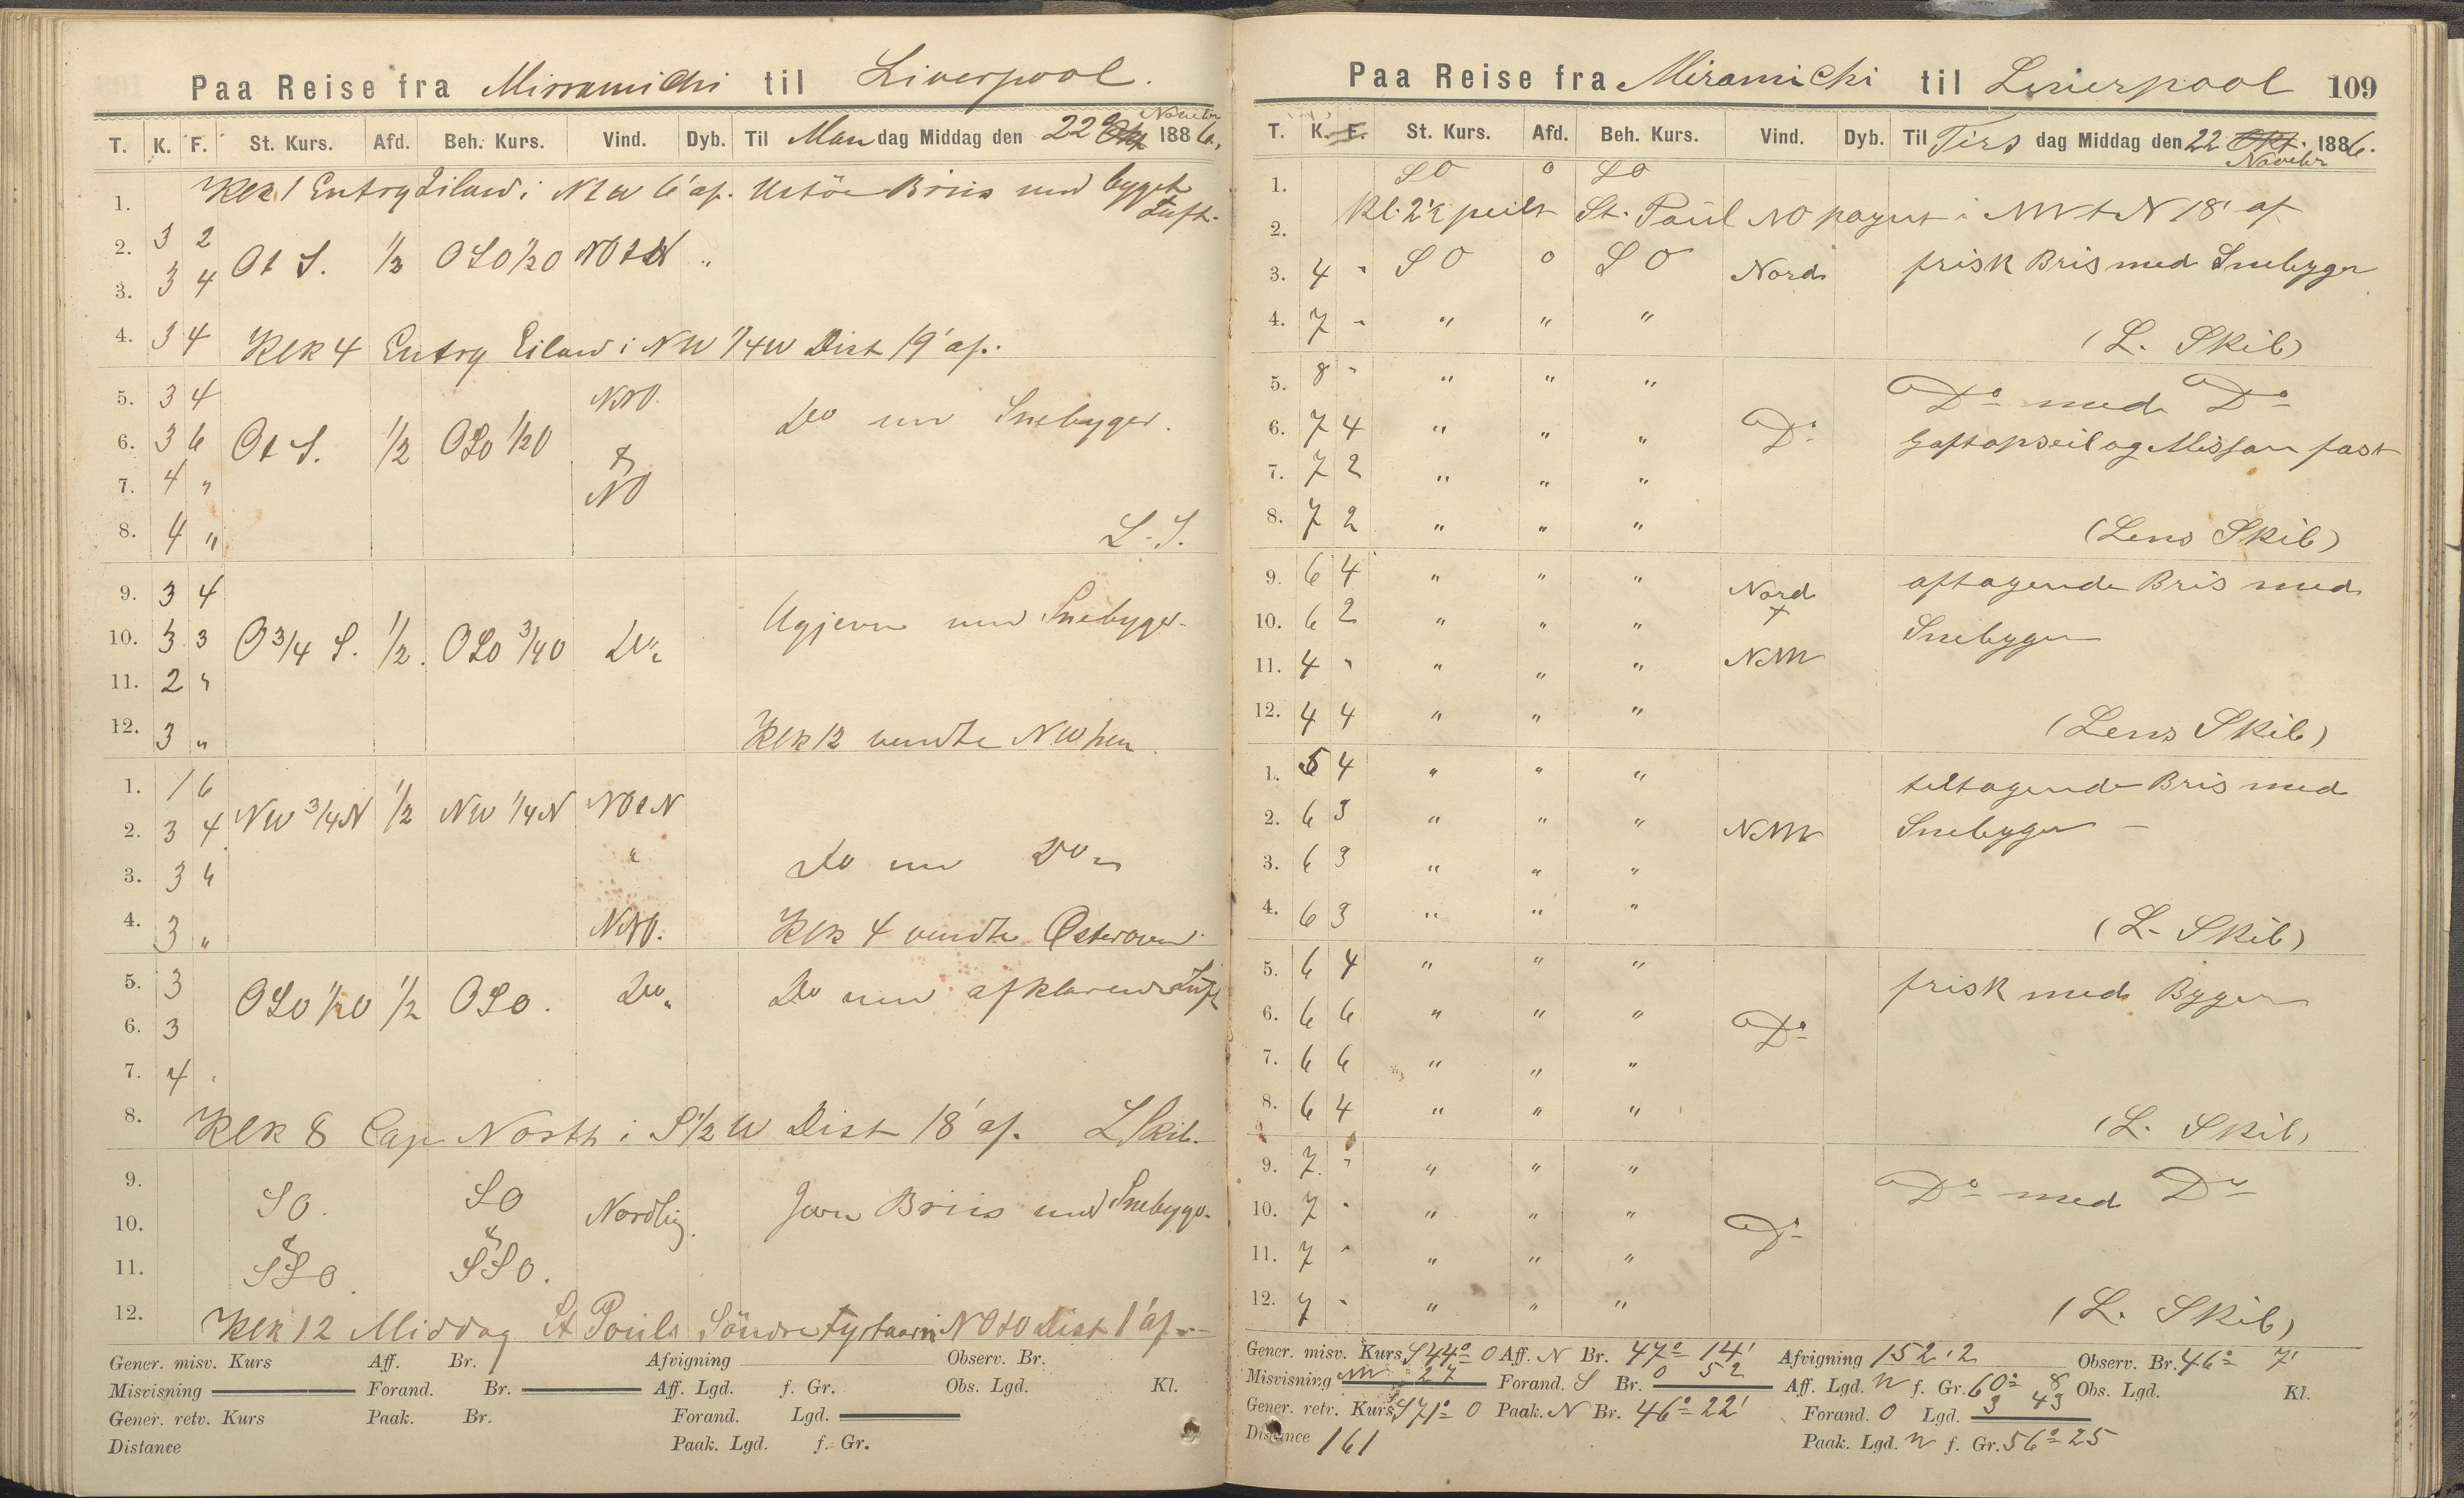 Paa Reise fra Mirramichi til Liverpool.
T. K. F. St. Kurs. Afd. Beh. Kurs. Vind. Dyb. Til Mandag Middag den 22 Novebr 1886.
1. Klk 1 Entry Eiland i NtW 6' af. Bris med byget Luft.
2. 3 2 Ot S. 1/2 OSO 1/2 O NOtN "
3. 3 4
4. 3 4 Klk 4 Entry Eiland i NW 1/4 W Dist 19' af.
5. 3 4 NNO
6. 3 6 Ot S. 1/2 OSO 1/2 O & Do med Snebyger.
7. 4 " NO
8. 4 " L. S.
9. 3 4
10. 3 3 O 3/4 S. 1/2. OSO 3/4 O Do Ugjevn med Snebyger.
11. 2 "
12. 3 " Klk 12 vendte NW hen.
1. 1 6
2. 3 4 NW 3/4 N 1/2 NW 1/4 N NOtN
3. 3 6 " Do med Do
4. 3 " NNO. Klk 4 vendte Østerover.
5. 3
6. 3 OSO 1/2 O 1/2 OSO. Do Do med afklarende Luft
7. 4 "
8. Klk 8 Cap North i S 1/2 W Dist 18' af. L Skib.
9.
10. SO. SO Nordlig. Jevn Briis med Snebyger.
11. & SSO. & SSO.
12. Klk 12 Middag St Pouls Söndre Fyrtaarn i NOtO Dist 1' af
Gener. misv. Kurs Aff. Br. Afvigning Observ. Br.
Misvisning Forand. Br. Aff. Lgd. f. Gr. Obs. Lgd. Kl.
Gener. retv. Kurs Paak. Br. Forand. Lgd.
Distance Paak. Lgd. f. Gr.
Paa Reise fra Miramichi til Liverpool 109
T. K. F. St. Kurs. Afd. Beh. Kurs. Vind. Dyb. Til Tirsdag Middag den 22 Okt. Novebr 1886.
1. SO 0 SO
2. Kl. 2 peilt St. Paul NO i NWtN 18' af
3. 4 " SO 0 SO Nord frisk Bris med Snebyger
4. 7 " " " " (L. Skib)
5. 8 " " " " Do med Do
6. 7 4 " " " Do Gaftopseil og Missan fast
7. 7 2 " " "
8. 7 2 " " " (Lens Skib)
9. 6 4 " " " Nord aftagende Bris med
10. 6 2 " " " t Snebyger
11. 4 " " " " NNW
12. 4 4 " " " (Lens Skib)
1. 5 4 " " " tiltagende Bris med
2. 6 3 " " " NNW Snebyger
3. 6 3 " " "
4. 6 3 " " " (L. Skib)
5. 6 4 " " " frisk med Byger
6. 6 6 " " " Do
7. 6 6 " " "
8. 6 4 " " " (L. Skib)
9. 7 " " " " Do med Do
10. 7 " " " " Do
11. 7 " " " "
12. 7 " " " " (L. Skib)
Gener. misv. Kurs S44° O Aff. N Br. 47° 14' Afvigning 152.2 Observ. Br. 46° 7'
Misvisning W 27 Forand. S Br. 0 52 Aff. Lgd. W f. Gr. 60° 8 Obs. Lgd. Kl.
Gener. retv. Kurs S71° O Paak. N Br. 46° 22' Forand. O Lgd. 3 43
Distance 161 Paak. Lgd. W f. Gr. 56° 25